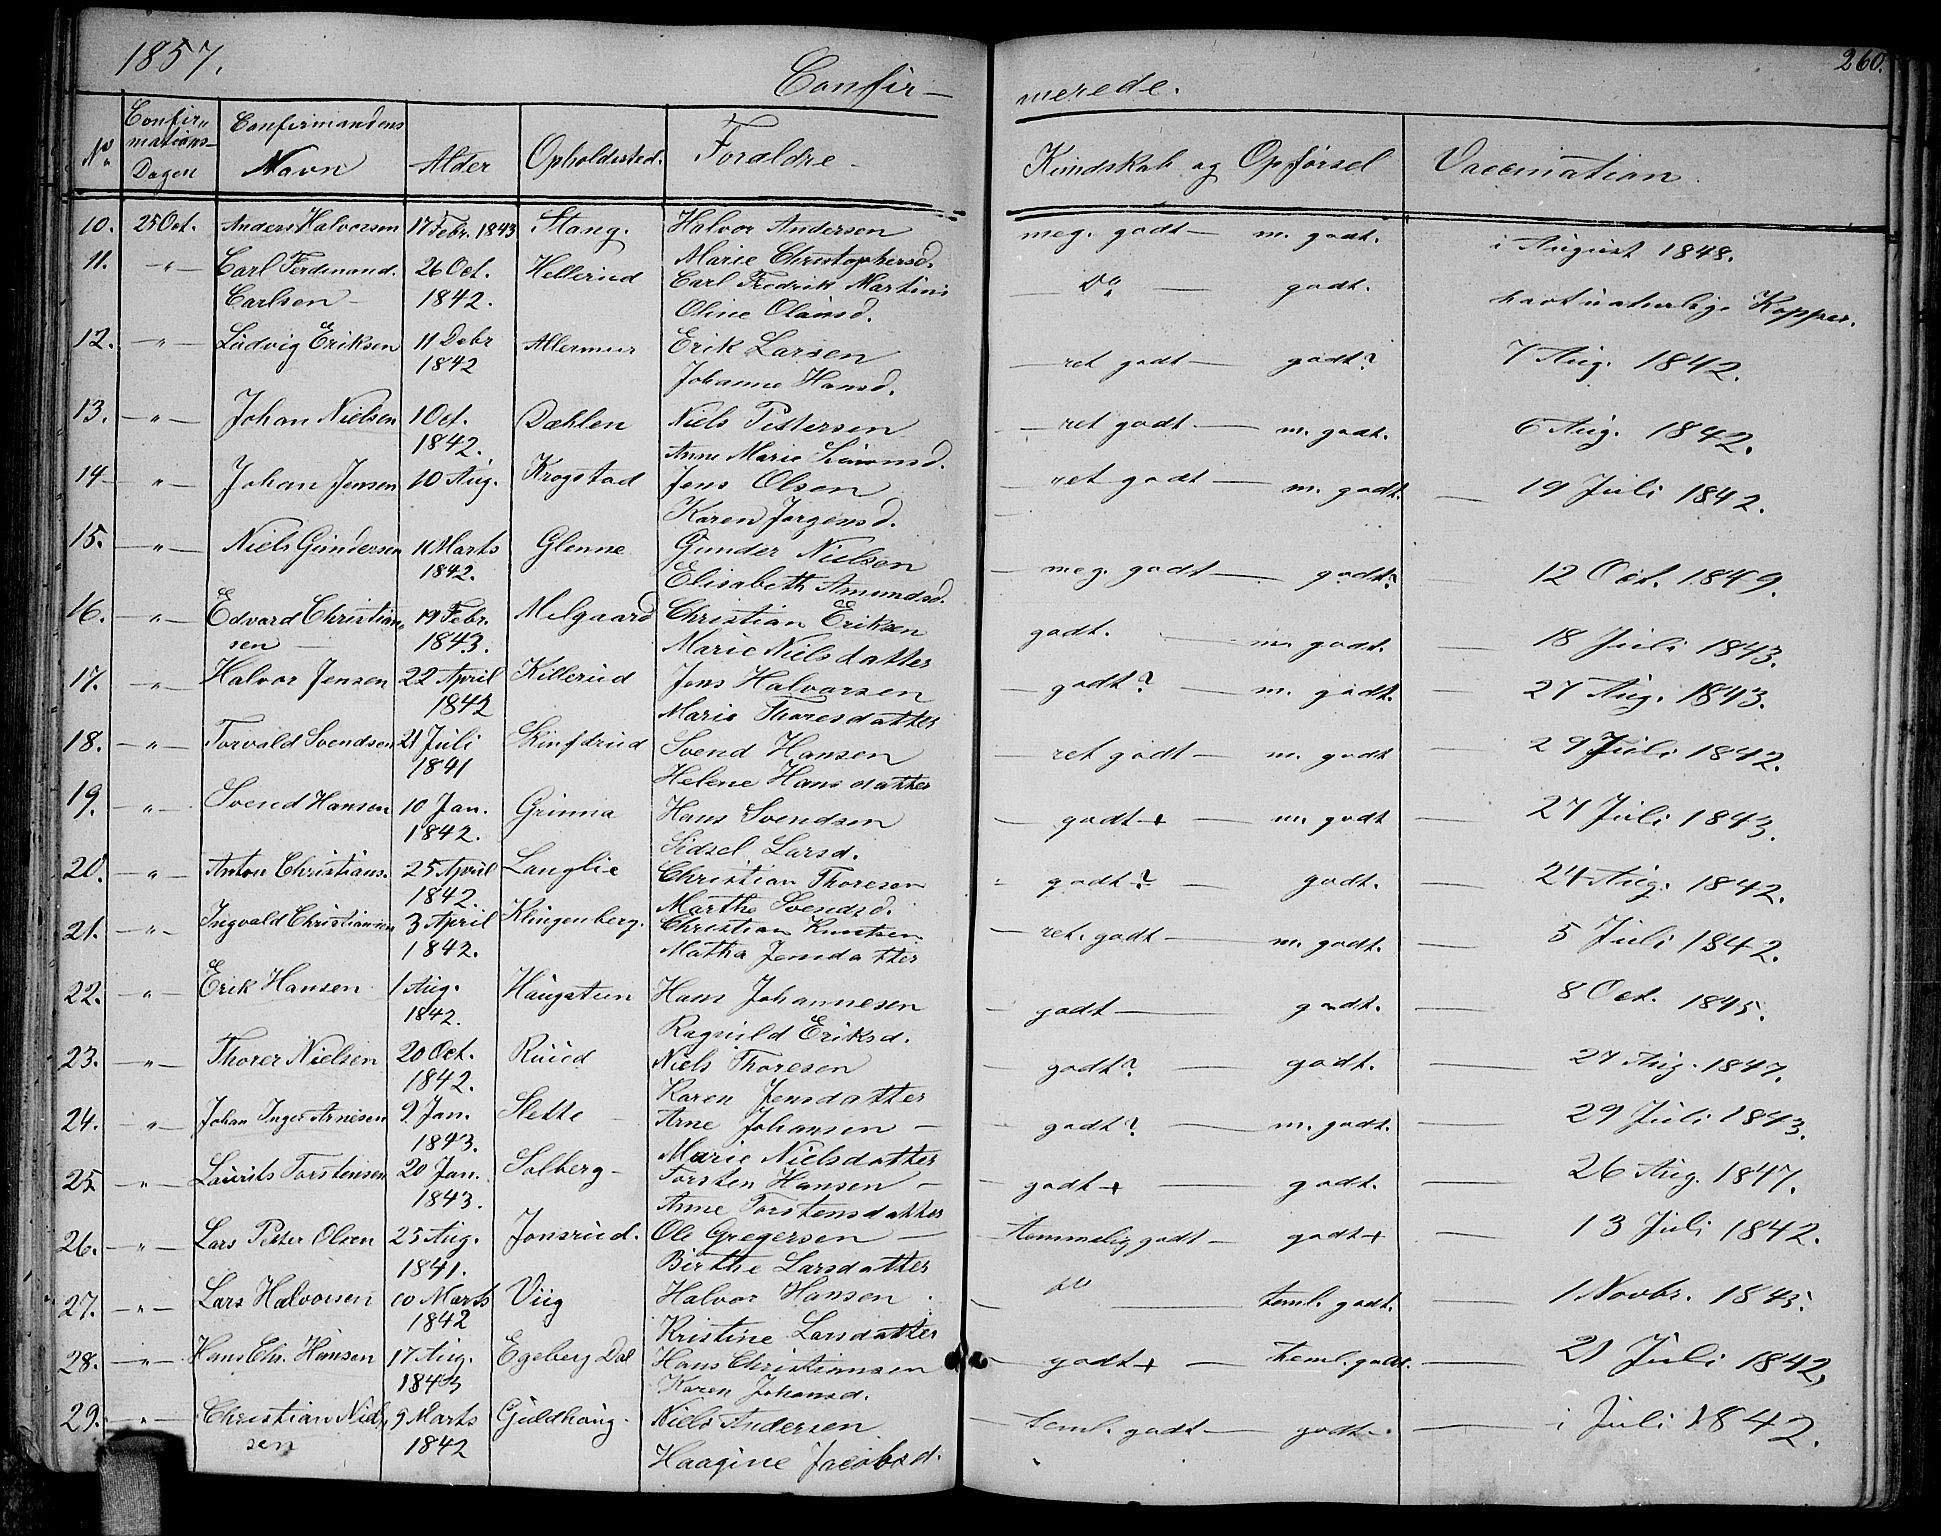 1857.
260.
Confir- merede.
No. Confir- mations- Dagen Confirmandens Navn Alder Opholdssted. Forældre Kundskab og Opførsel Vaccination
10. 25 Oct. Anders Halvorsen 17 Febr. 1843 Stang. Halvor Andersen meg. godt — m. godt. i August 1848.
Marie Christophersd.
11. —"— Carl Ferdinand 26 Oct. Hellerud Carl Fredrik Martini Do — godt. havt naturlige Kopper.
Carlsen 1842. Oline Olausd.
12. —"— Ludvig Eriksen 11 Debr Allermuur Erik Larsen ret godt — godt? 7 Aug. 1842.
1842 Johanne Hansd.
13. —"— Johan Nielsen 1 Oct. Dæhlen Niels Pettersen ret godt — m. godt. 6 Aug. 1842.
1842. Anne Marie Simonsd.
14 —"— Johan Jensen 10 Aug. Krogstad Jens Olsen ret godt — m. godt. — 19 Juli 1842.
Karen Jørgensd.
15. —"— Niels Gundersen 11 Marts Glenne Gunder Nielsen meg. godt — godt? 12 Oct. 1849.
1842. Elisabeth Amundsd.
16. —"— Edvard Christian- 19 Febr. Melgaard Christian Eriksen godt. — m. godt. — 18 Juli 1843.
sen — 1843. Marie Nielsdatter
17. —"— Halvor Jensen 22 April Killerud Jens Halvorsen godt? — m. godt. — 27 Aug. 1843.
1842 Marie Thoresdatter
18. —"— Torvald Svendsen 21 Juli Svend Hansen ret godt — m. godt — 29 Juli 1842.
1841 Helene Hansdatter
19. —"— Svend Hansen 10 Jan. Grinna Hans Svendsen godt+ — m. godt — 27 Juli 1843.
1842. Sidsel Larsd.
20. —"— Anton Christians. 25 April Langlie Christian Thoresen godt? — godt. — 24 Aug. 1842.
1842. Marthe Svendsd.
21. —"— Ingvald Christiansen 3 April Klingenberg. Christian Knutsen ret. godt — m. godt. — 5 Juli 1842.
1842. Mathea Jensdatter
22. —"— Erik Hansen 1 Aug. Haugsteen Hans Johannesen godt — godt. 8 Oct. 1845.
1842. Ragnild Eriksd.
23. —"— Thorer Nielsen 20 Oct. Ruud Niels Thoresen godt? godt. — 27 Aug. 1847.
1842. Karen Jensdatter
24. —"— Johan Inger Arnesen 9 Jan. Slette Arne Johansen — godt? — m. godt. — 29 Juli 1843.
1843. Marie Nielsdatter
25 —"— Laurits Torstensen 20 Jan. Solberg — Torsten Hansen — godt+ — godt. — 26 Aug. 1847.
1843. Anne Torstensdatter
26. —"— Lars Petter Olsen 25 Aug. Jonsrud. Ole Gregersen — temmelig godt — godt+ — 13 Juli 1842.
1841. Birthe Larsdatter
27. —"— Lars Halvorsen 10 Marts Viig Halvor Hansen Do — teml. godt. — 1 Novbr. 1845.
1842 Kristine Larsdatter
28. —"— Hans Chr. Hansen 17 Aug. Egeberg Dal Hans Christiansen godt+ — teml. godt. — 21 Juli 1842,
1843 Karen Johansd.
29. —"— Christian Niel- 9 Marts Guldhaug. Niels Andersen teml. godt — godt — i Juli 1842.
sen 1842 Haagine Jacobsd.